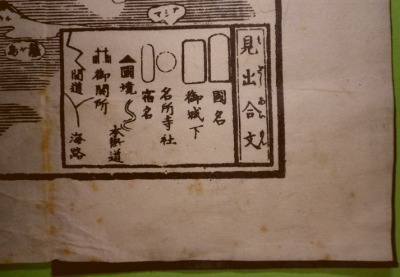 見出合文
國名
御城下
名所寺社
宿名
國境
本街道
御関所
間道
海路